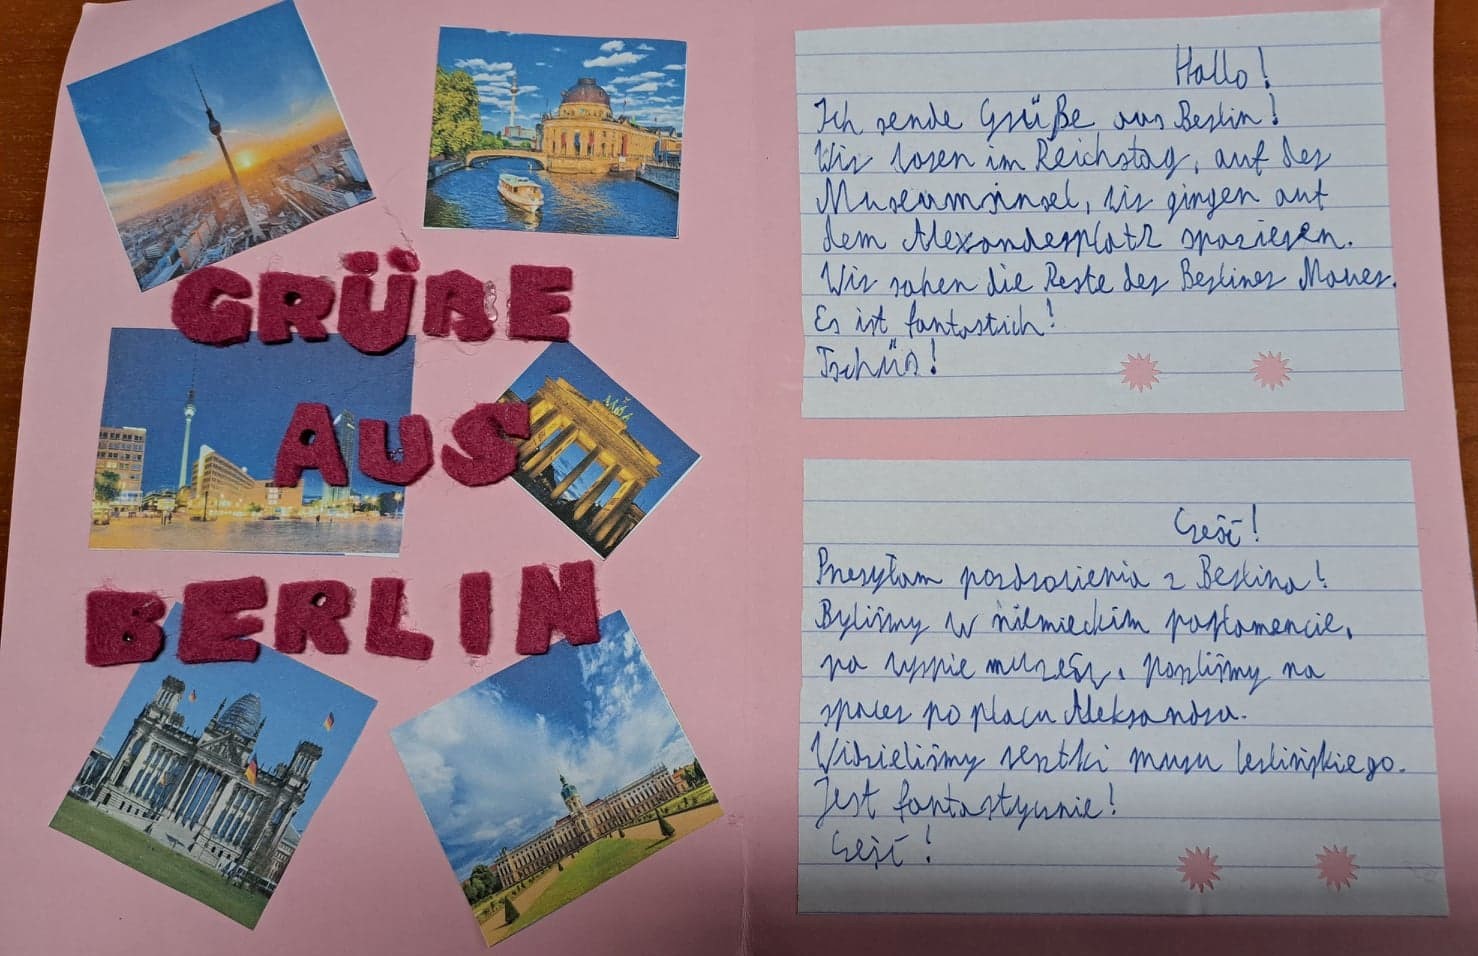 GRÜßE
AUS
BERLIN
Hallo!
Ich sende Grüße aus Berlin!
Wir waren im Reichstag, auf der
Museumsinsel, wir gingen auf
dem Alexanderplatz spazieren.
Wir sahen die Reste der Berliner Mauer.
Es ist fantastich!
Tschüs!
Cześć!
Przesyłam pozdrowienia z Berlina!
Byliśmy w niemieckim parlamencie,
na wyspie muzeów, poszliśmy na
spacer po placu Aleksandra.
Widzieliśmy resztki muru berlińskiego.
Jest fantastycznie!
Cześć!